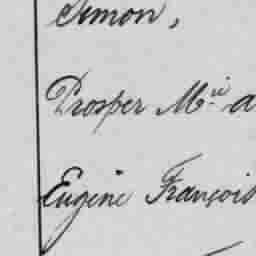 Simon,
Prosper M.ie a
Eugène François